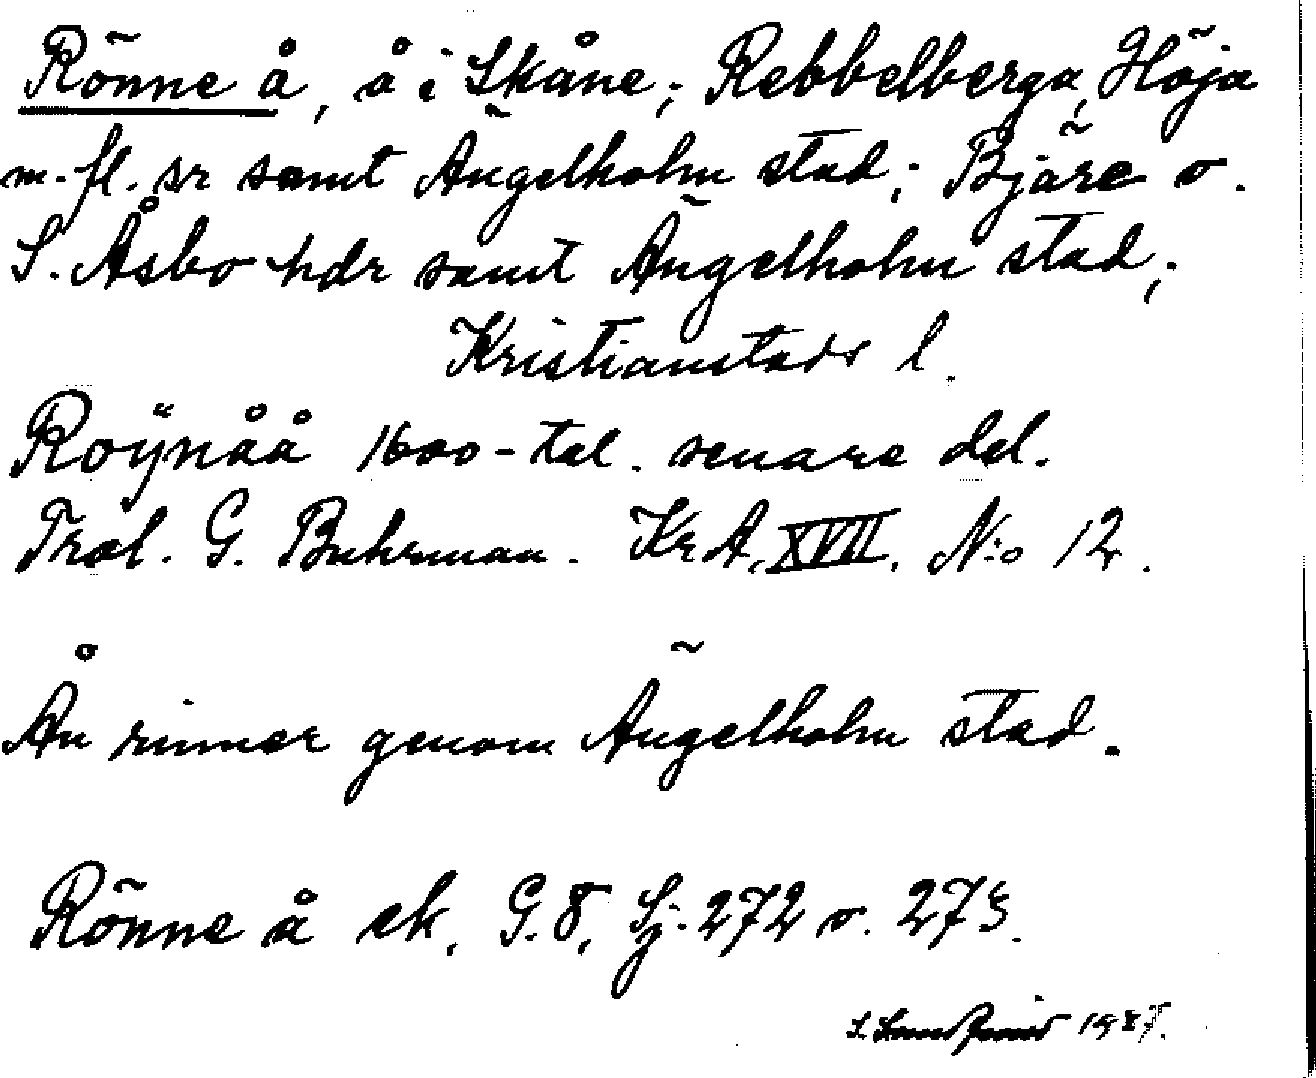 Rönne å, å i Skåne; Rebbelberga, Höja
m. fl. sr samt Ängelholm stad; Bjäre o.
S. Åsbo hdr samt Ängelholm stad;
Kristianstads l.
Roÿnåå 1600-tal. senare del.
Tral. G. Buhrman. KrA, XVII. N:o 12.
Ån rinner genom Ängelholm stad.
Rönne å ek. G.8, Sj. 272 o. 273.
1987.